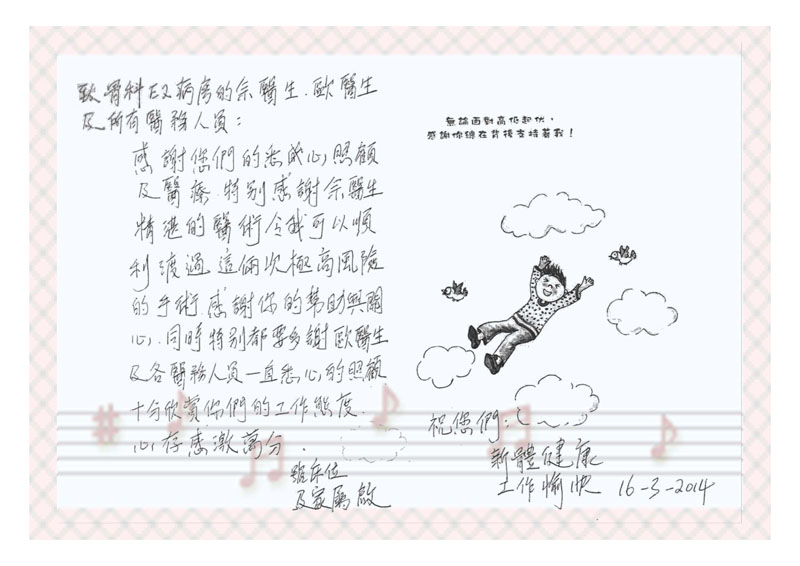 致骨科E2病房的宗醫生、歐醫生
及所有醫務人員：
感謝您們的悉心照顧
及醫療．特别感謝宗醫生
精湛的醫術令我可以順
利渡過這倆次極高風險
的手術．感謝你的幫助與關
心．同時特别都要多謝歐醫生
及各醫務人員一直悉心的照顧
十分欣賞你們的工作態度．
心存感激萬分．
號床位
及家屬啟
無論面對高低起伏，
感謝你總在背後支持著我！
祝您們：
身體健康
工作愉快 16-3-2014